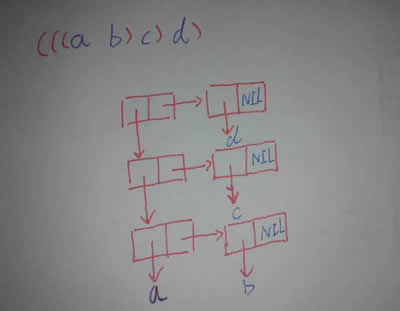 (((a b) c) d)
NIL
d
NIL
c
NIL
a b